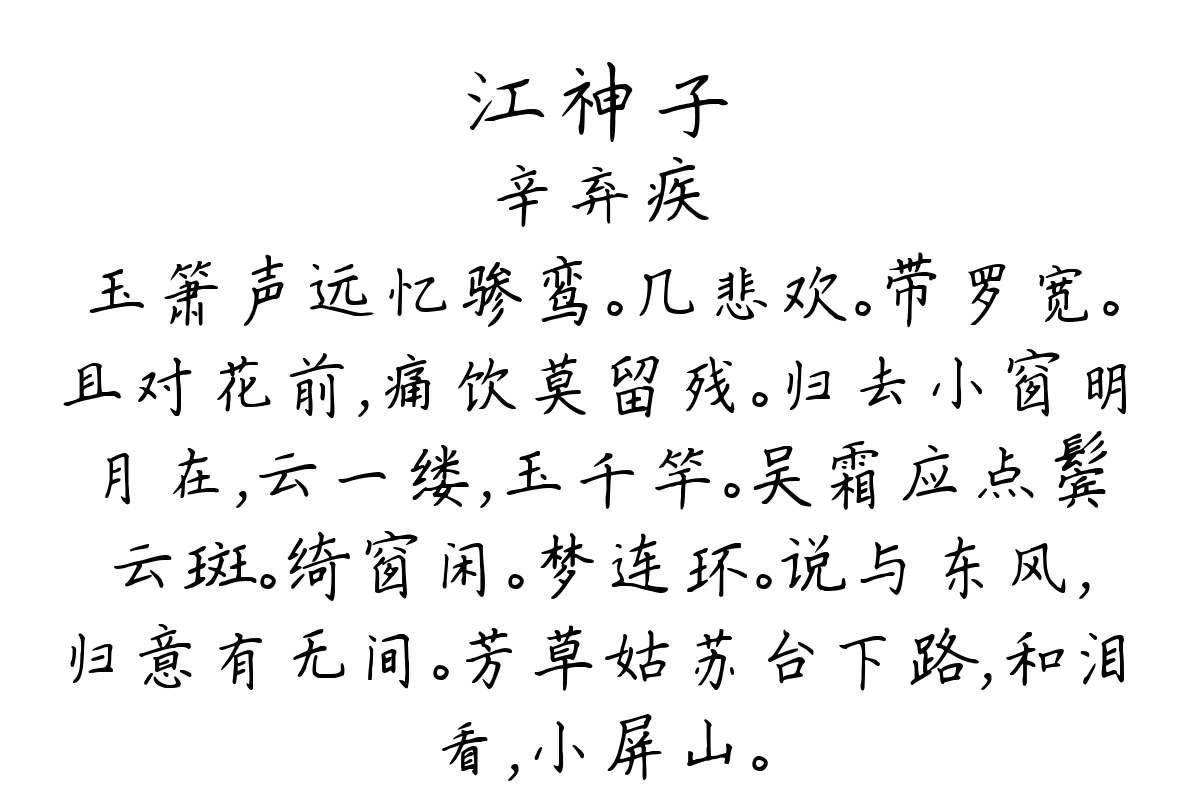 江神子
辛弃疾
玉箫声远忆骖鸾。几悲欢。带罗宽。
且对花前,痛饮莫留残。归去小窗明
月在,云一缕,玉千竿。吴霜应点鬓
云斑。绮窗闲。梦连环。说与东风,
归意有无间。芳草姑苏台下路,和泪
看,小屏山。